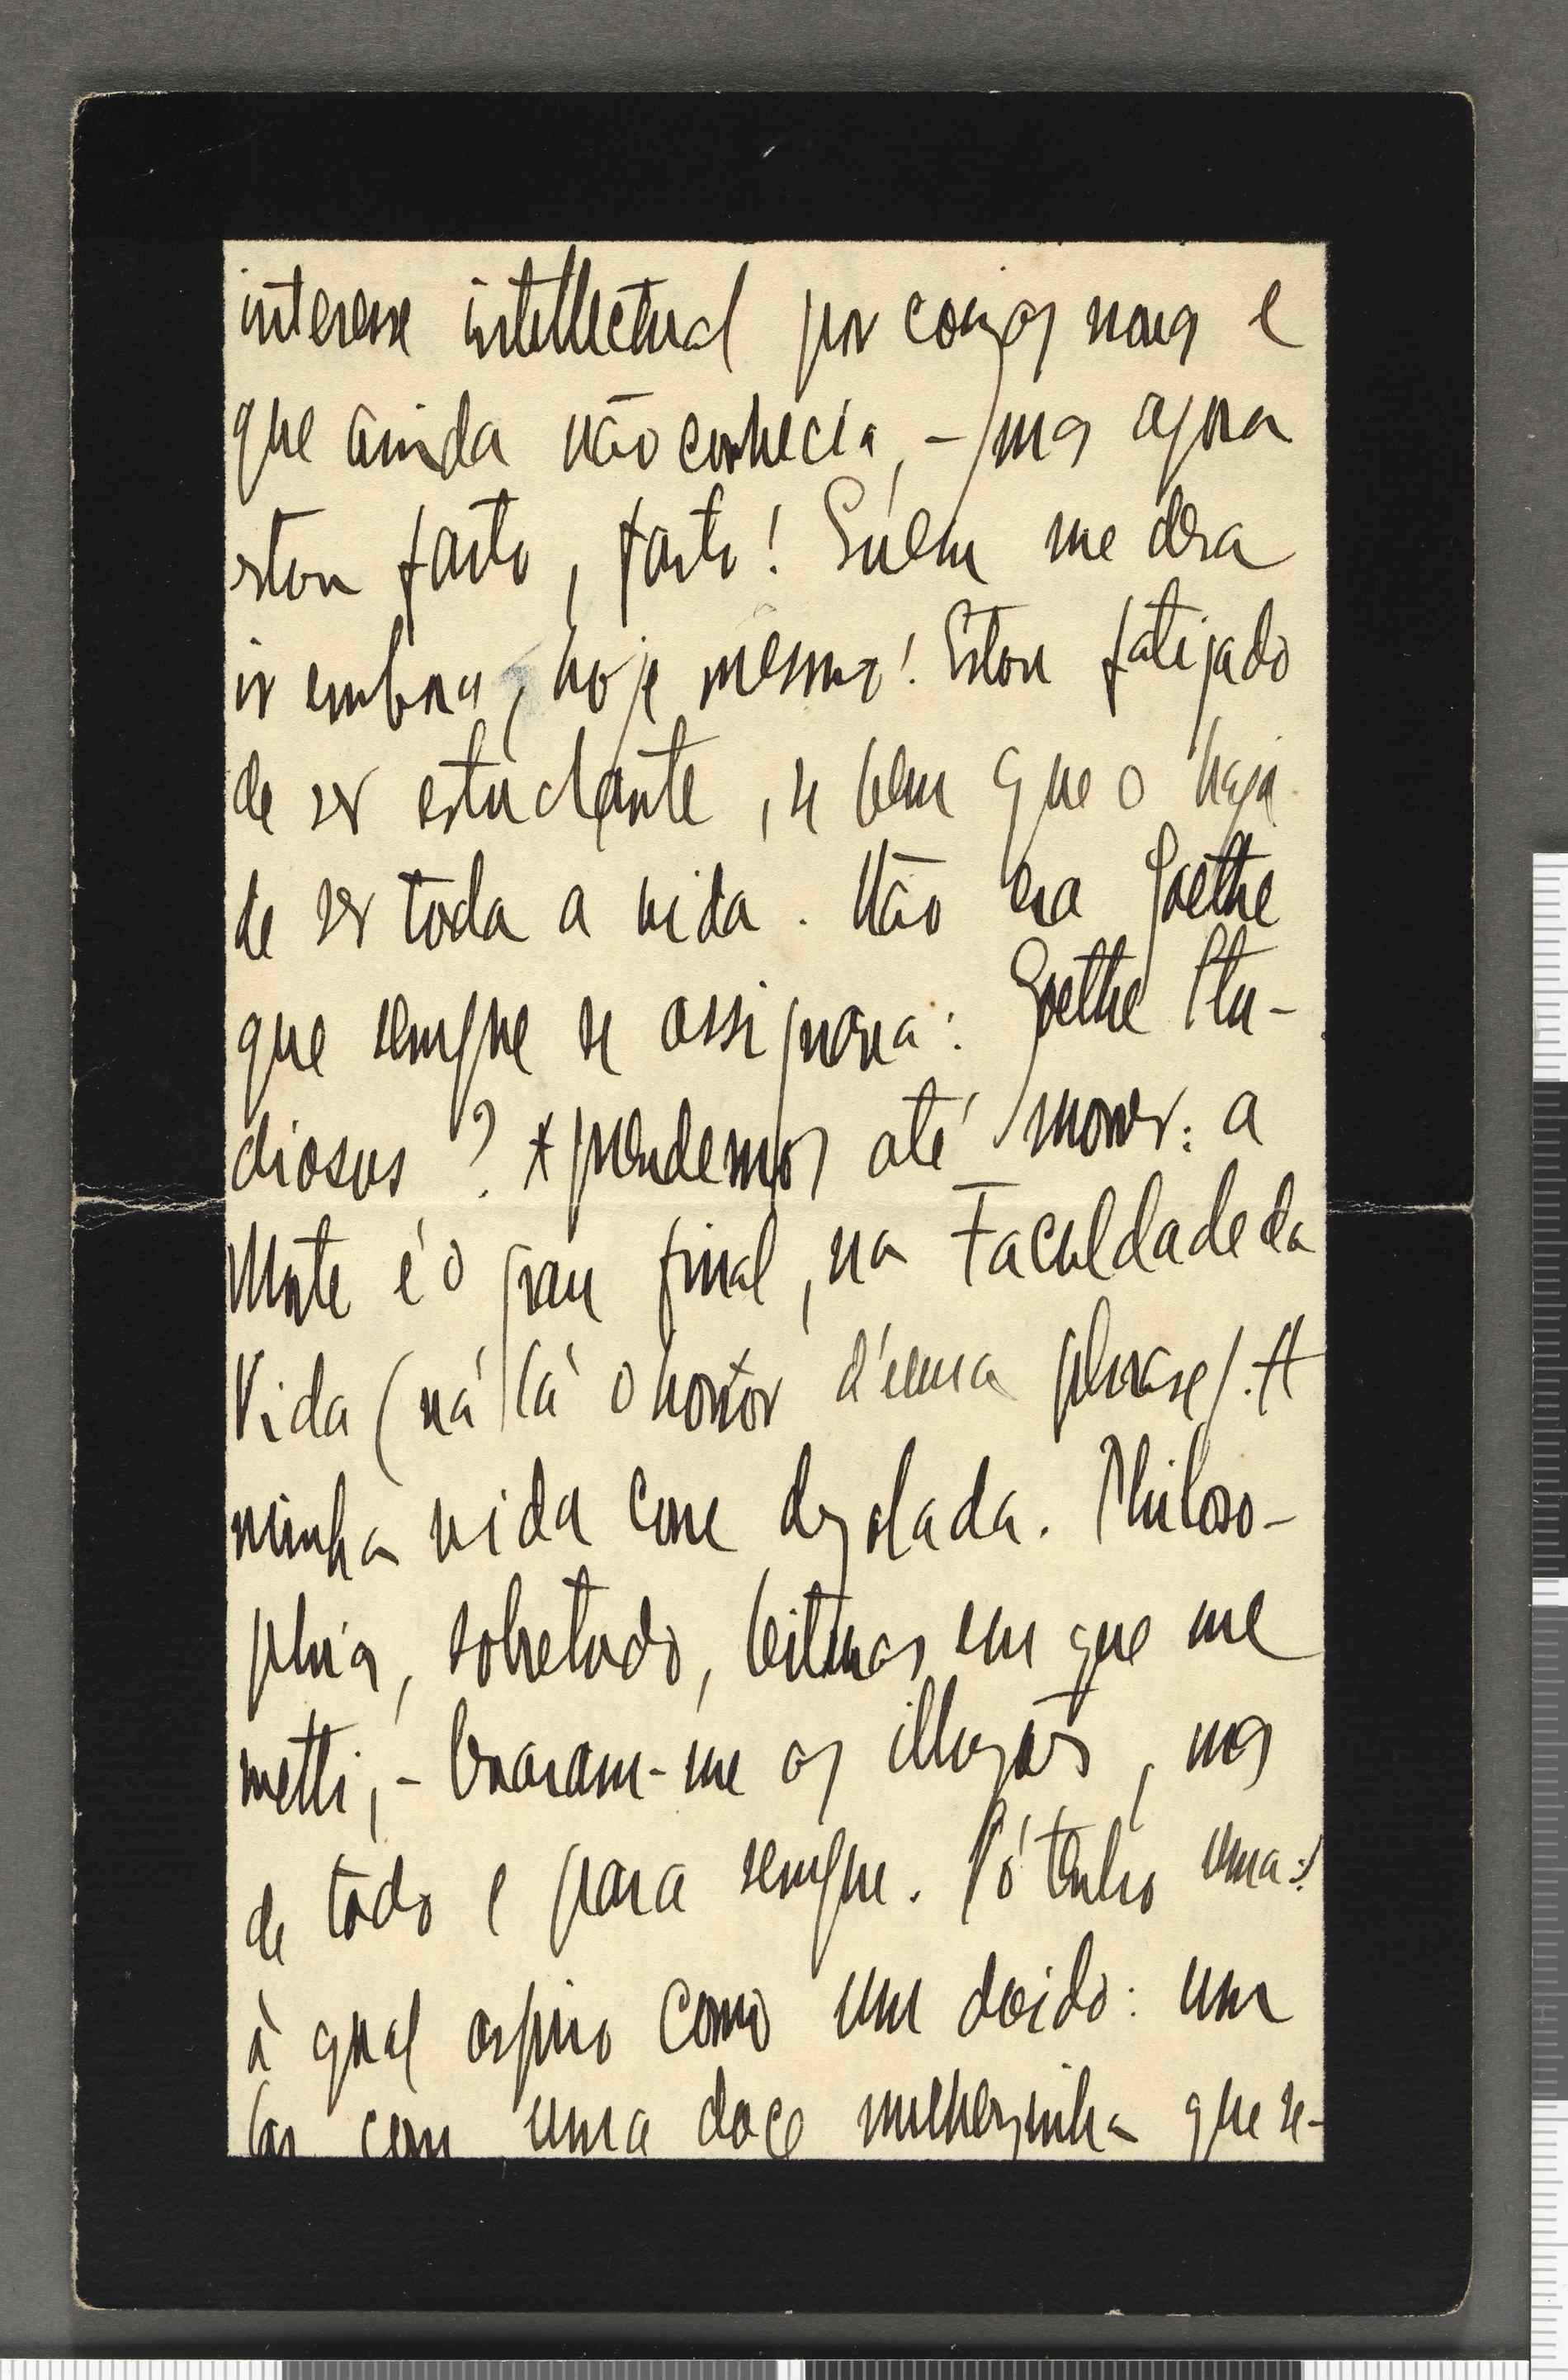 interesse intellectual por coizas novas e
que ainda não conhecia, - mas agora
estou farto, farto! Quem me dera
ir embora, hoje mesmo! Estou fatigado
de ser estudante, se bem que o haja
de ser toda a vida. Não era Goethe
que sempre se assignava: Goethe Stu-
diosus? Aprendemos até morrer: a
Morte é o grau final, na Faculdade da
Vida (vá lá o horror d'uma phrase). A
minha vida corre dezolada. Philoso-
phia, sobretudo, leituras em que me
metti, - levaram-me as illuzões, mas
de todo e para sempre. Só tenho uma:
à qual aspiro como um doido: um
lar com uma doce mulherzinha que se-